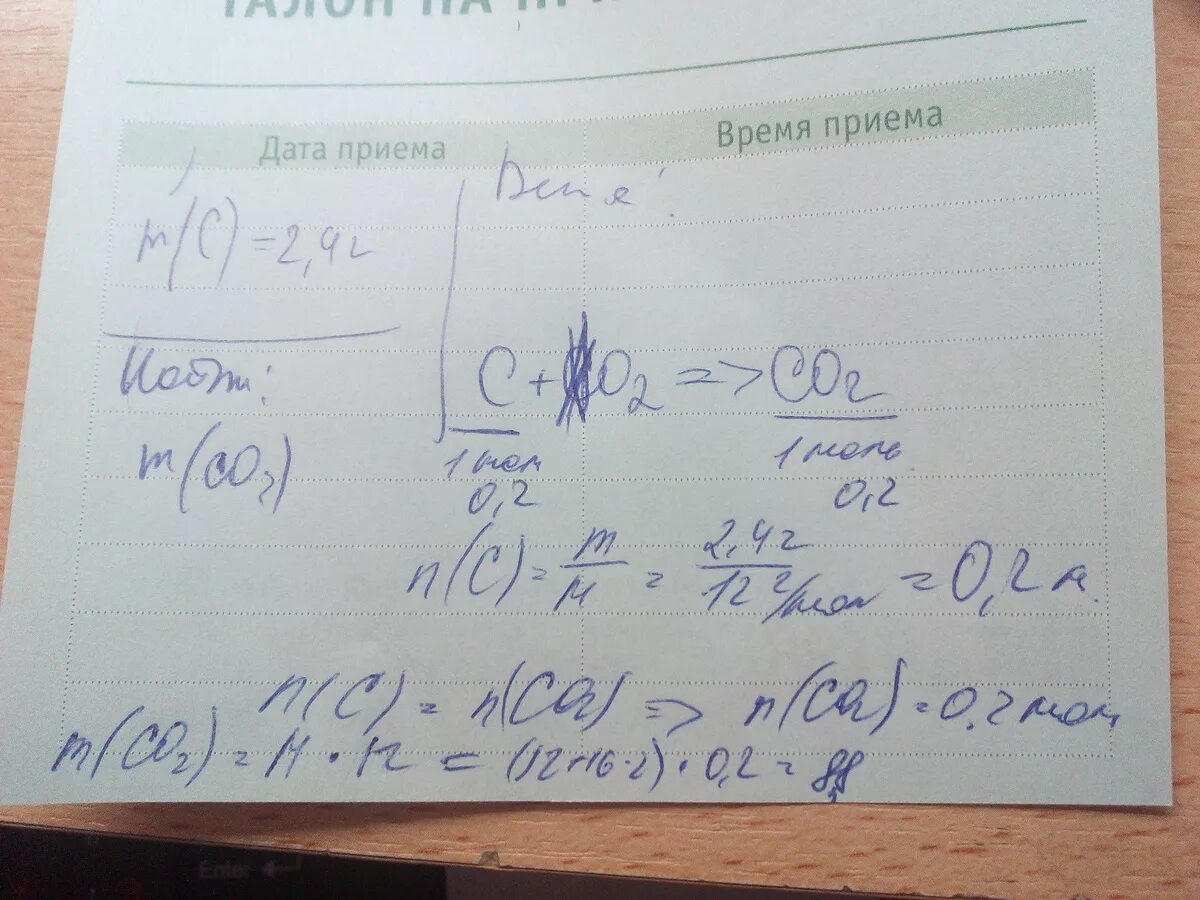 ТАЛОН НА
Дата приема
Время приема
m(C) = 2,4г
Найти:
m(CO2)
C + O2 => CO2
1 мол 1 моль
0,2 0,2
n(C) = m/M = 2,4г/12 г/мол = 0,2 м.
n(C) = n(CO2) => n(CO2) = 0,2 мол
m(CO2) = M · n = (12+16·2) · 0,2 = 8,8
Enter